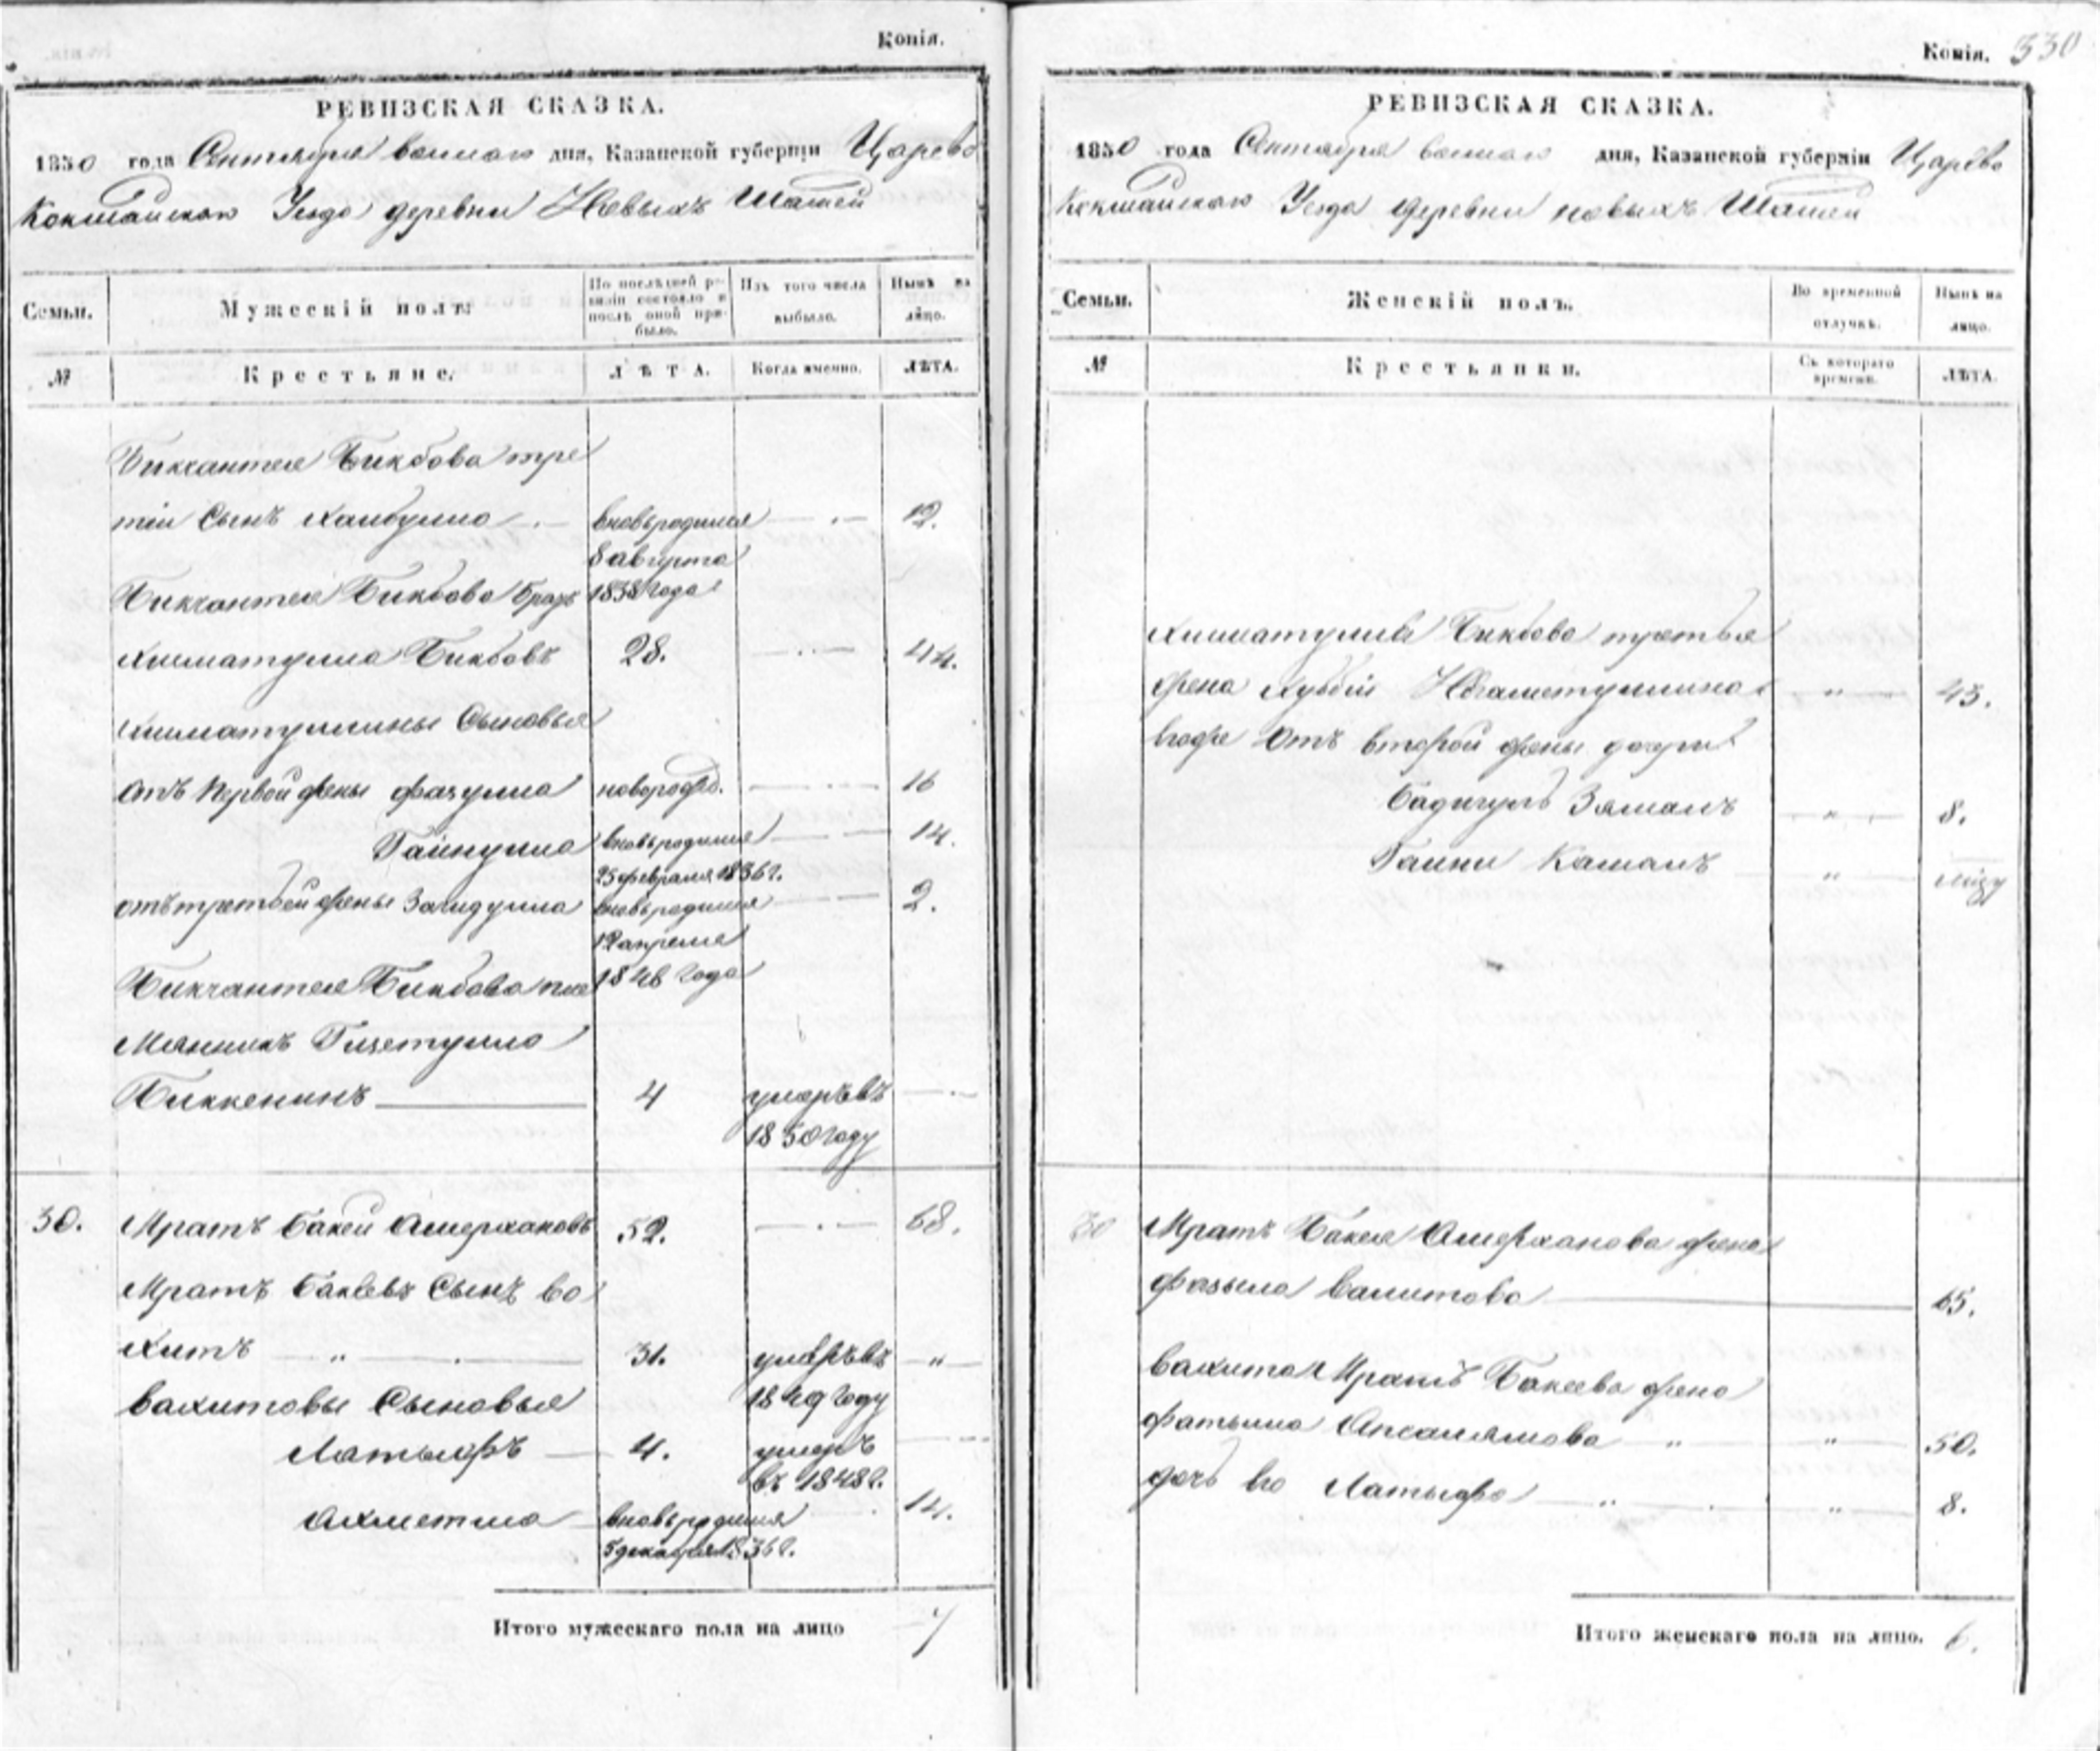 Копія.
РЕВИЗСКАЯ СКАЗКА.
1850 года Сентября дня, Казанской губерніи Царево
Кокшайскаго Уезда деревни Новыхъ Шашей
Семьи.
Мужескій полъ.
По послѣдней ре-
визіи состояло и
послѣ оной при-
было.
Изъ того числа
выбыло.
Нынѣ на
лицо.
№
Крестьяне.
ЛѢТА.
Когда именно.
ЛѢТА.
Бикчантея Бикбова тре
тій Сынъ Хайбулла вновьродился 12.
8 августа
Бикчантея Бикбова братъ 1838 года
Хисматулла Бикбовъ 28. 44.
Хисматуллины Сыновья
отъ первой жены Фазулла новорожд. 16
Гайнулла вновьродился 14.
25 февраля 1836 г.
отъ третьей жены Загидулла вновьродился 2.
12 апреля
Бикчантея Бикбова пле 1848 года
мянникъ
Биккенинъ 4 умеръ въ
1850 году
30. Мратъ Бакей Амерхановъ 52. 68.
Мратъ Бакеевъ Сынъ Ва
хитъ „ 31. умеръ въ „
Вахитовы Сыновья 1849 году
Латыфъ 4. умеръ
въ 1848 г.
Ахметша вновьродился 14.
5 декабря 1836 г.
Итого мужескаго пола на лицо 7
Копія. 330
РЕВИЗСКАЯ СКАЗКА.
1850 года Сентября дня, Казанской губерніи Царево
Кокшайскаго Уезда деревни новыхъ Шашей
Семьи.
Женскій полъ.
Во временной
отлучкѣ.
Нынѣ на
лицо.
№
Крестьянки.
Съ котораго
времени.
ЛѢТА.
Хисматуллы Бикбова третья
жена Хубби „ 43.
Егоже отъ второй жены дочери
Бадигулъ Зямалъ „ 8.
Гайни Камалъ „
30 Мратъ Бакея Амерханова жена
Фазыла Валитова 65.
Вахита Мратъ Бакеева жена
Фатыма Апсалямова „ „ 50.
дочь Его Латыфа „ „ 8.
Итого женскаго пола на лицо. 6.